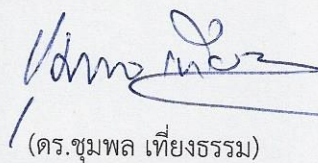 (ดร.ชุมพล เที่ยงธรรม)